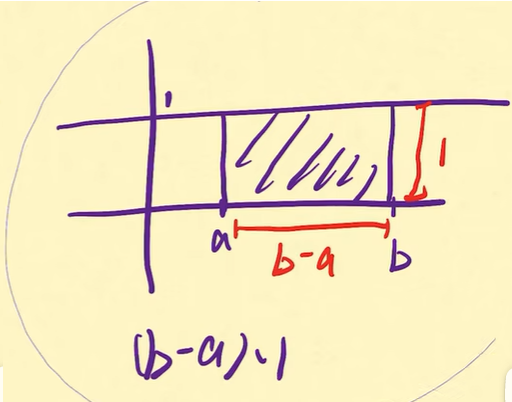 1
1
a
b-a
b
(b-a).1